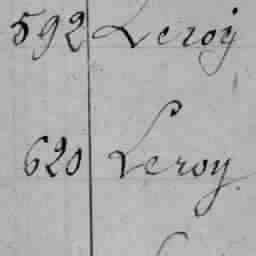 592 Leroy
620 Leroy